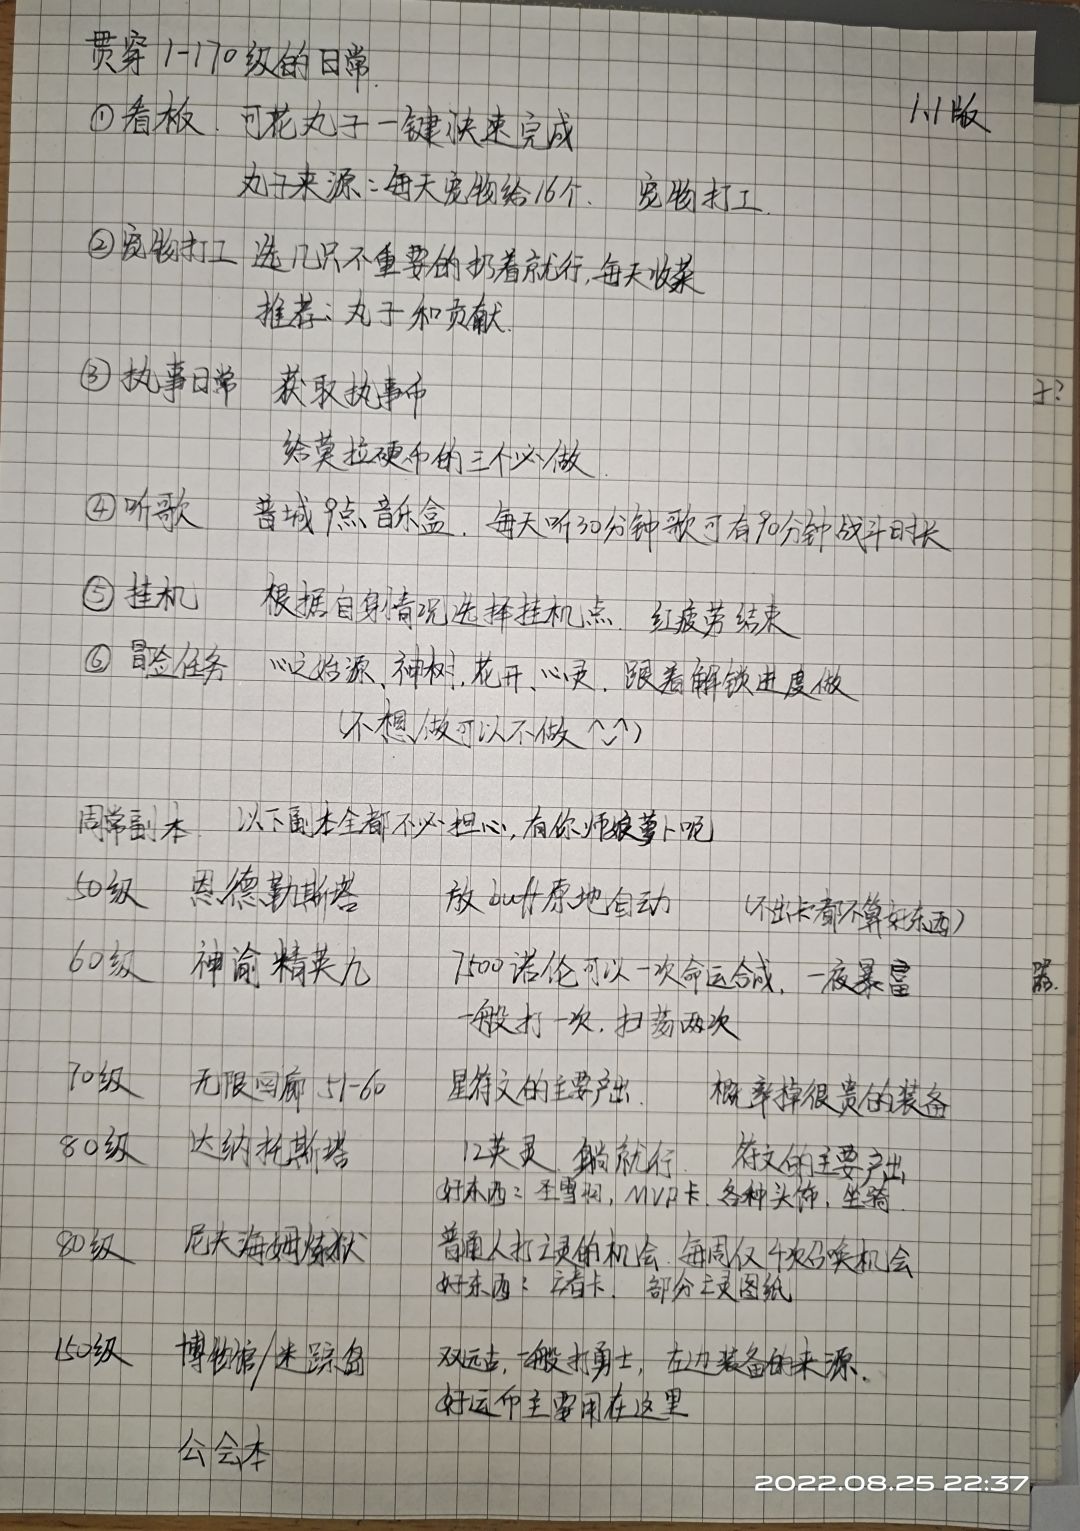 贯穿1-170级的日常
1.1版
①看板. 可花丸子一键快速完成
丸子来源:每天宠物给16个. 宠物打工.
②宠物打工 选几只不重要的扔着就行,每天收菜
推荐:丸子和贡献.
③执事日常 获取执事币
给莫拉硬币的三个必做
④听歌 普城9点音乐盒. 每天听30分钟歌可有90分钟战斗时长
⑤挂机 根据自身情况选择挂机点. 红疲劳结束
⑥冒险任务 心之始源、神树、花开、心灵. 跟着解锁进度做
(不想做可以不做^◡^)
周常副本. 以下副本全都不必担心,有你师娘萝卜呢
50级 恩德勒斯塔 放buff原地自动 (不出卡都不算好东西)
60级 神谕精英九 7500诺伦可以一次命运合成, 一夜暴富
一般打一次, 扫荡两次
70级 无限回廊51-60 星符文的主要产出. 概率掉很贵的装备
80级 达纳托斯塔 12英灵. 躺就行. 符文的主要产出
好东西:圣雪 , MVP卡. 各种头饰, 坐骑.
80级 尼夫海姆炼狱 普通人打王灵的机会. 每周仅4次召唤机会
好东西: 王者卡. 部分王灵图纸
150级 博物馆/迷踪岛 双远古, 一般打勇士, 左边装备的来源.
好运币主要用在这里
公会本
于?
器.
2022.08.25 22:37